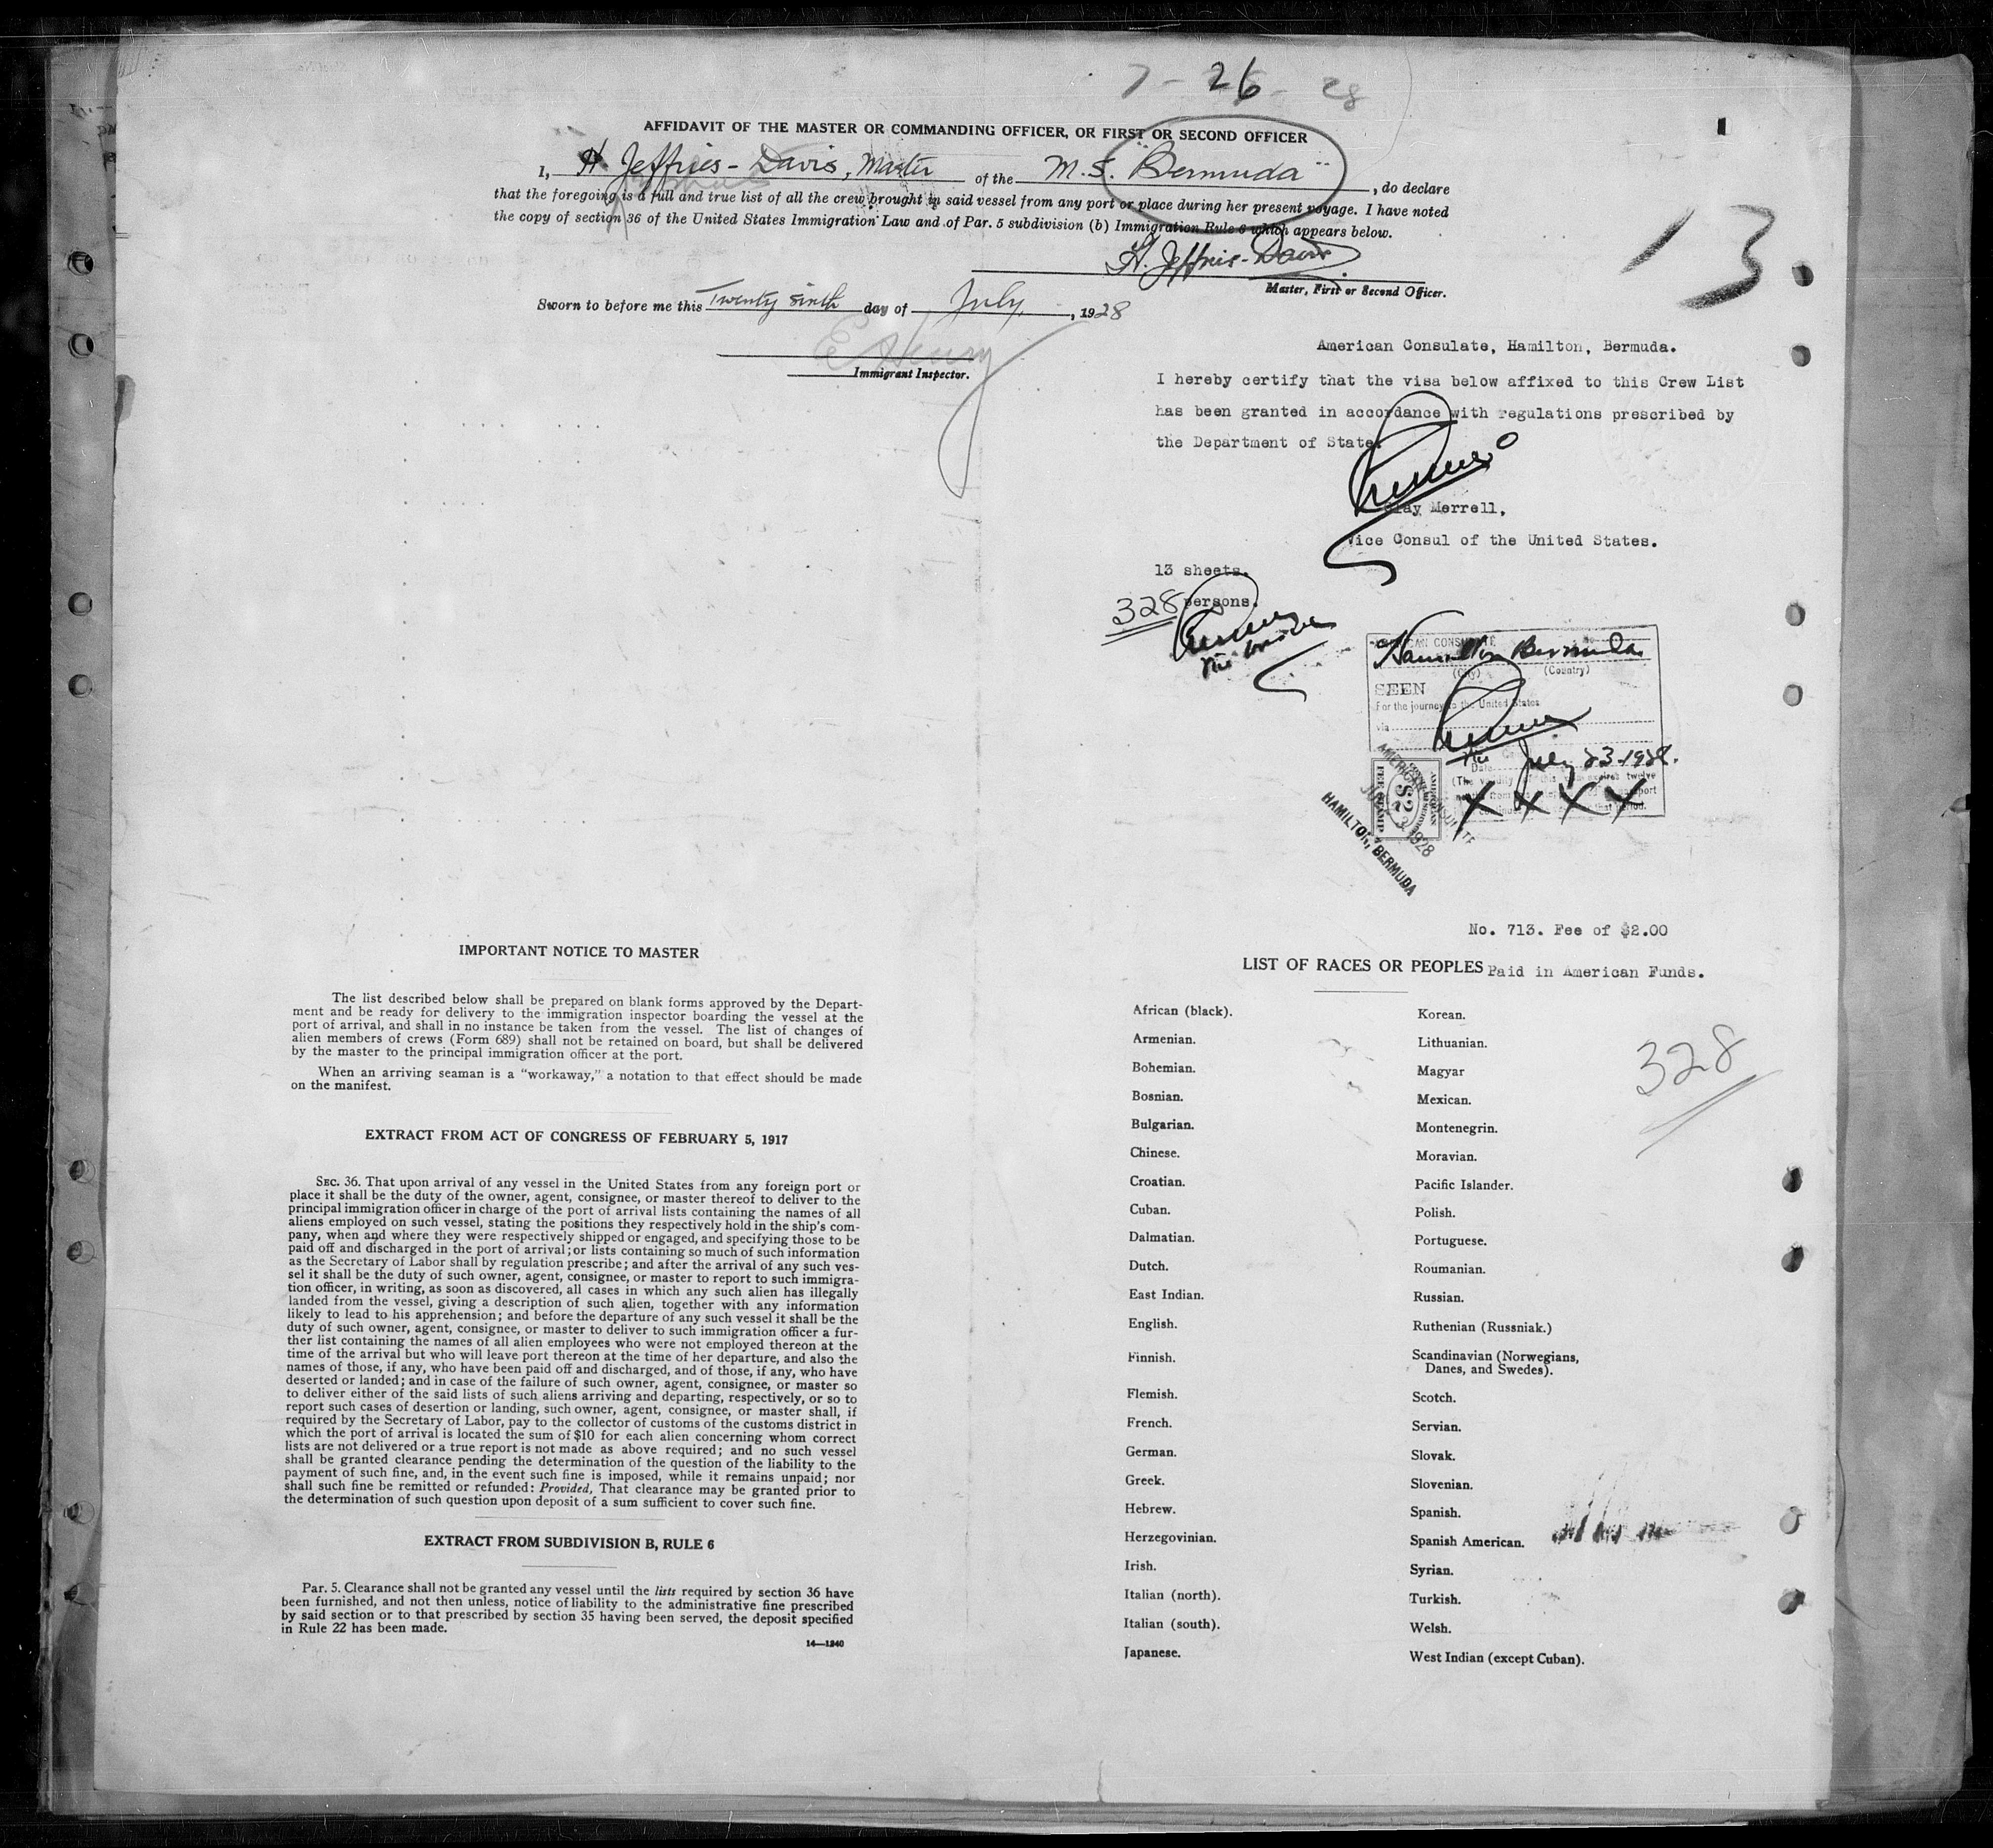 7-26-28
AFFIDAVIT OF THE MASTER OR COMMANDING OFFICER, OR FIRST OR SECOND OFFICER
I, H Jeffries-Davis, Master of the M.S. "Bermuda", do declare
that the foregoing is a full and true list of all the crew brought in said vessel from any port or place during her present voyage. I have noted
the copy of section 36 of the United States Immigration Law and of Par. 5 subdivision (b) Immigration Rule 6 which appears below.
13
H. Jeffries-Davis
Master, First or Second Officer.
Sworn to before me this Twenty sixth day of July, 1928
E Henry
Immigrant Inspector.
American Consulate, Hamilton, Bermuda.
I hereby certify that the visa below affixed to this Crew List
has been granted in accordance with regulations prescribed by
the Department of State.
Clay Merrell,
Vice Consul of the United States.
13 sheets.
328 persons.
AMERICAN CONSULATE
Hamilton Bermuda
(City) (Country)
SEEN
For the journey to the United States
via
Date July 23-1928.
(The validity of this visa expires twelve
X X X X
AMERICAN CONSULATE
JUL 23 1928
HAMILTON, BERMUDA
FEE STAMP
$2
No. 713. Fee of $2.00
Paid in American Funds.
IMPORTANT NOTICE TO MASTER
The list described below shall be prepared on blank forms approved by the Depart-
ment and be ready for delivery to the immigration inspector boarding the vessel at the
port of arrival, and shall in no instance be taken from the vessel. The list of changes of
alien members of crews (Form 689) shall not be retained on board, but shall be delivered
by the master to the principal immigration officer at the port.
When an arriving seaman is a "workaway," a notation to that effect should be made
on the manifest.
EXTRACT FROM ACT OF CONGRESS OF FEBRUARY 5, 1917
SEC. 36. That upon arrival of any vessel in the United States from any foreign port or
place it shall be the duty of the owner, agent, consignee, or master thereof to deliver to the
principal immigration officer in charge of the port of arrival lists containing the names of all
aliens employed on such vessel, stating the positions they respectively hold in the ship's com-
pany, when and where they were respectively shipped or engaged, and specifying those to be
paid off and discharged in the port of arrival; or lists containing so much of such information
as the Secretary of Labor shall by regulation prescribe; and after the arrival of any such ves-
sel it shall be the duty of such owner, agent, consignee, or master to report to such immigra-
tion officer, in writing, as soon as discovered, all cases in which any such alien has illegally
landed from the vessel, giving a description of such alien, together with any information
likely to lead to his apprehension; and before the departure of any such vessel it shall be the
duty of such owner, agent, consignee, or master to deliver to such immigration officer a fur-
ther list containing the names of all alien employees who were not employed thereon at the
time of the arrival but who will leave port thereon at the time of her departure, and also the
names of those, if any, who have been paid off and discharged, and of those, if any, who have
deserted or landed; and in case of the failure of such owner, agent, consignee, or master so
to deliver either of the said lists of such aliens arriving and departing, respectively, or so to
report such cases of desertion or landing, such owner, agent, consignee, or master shall, if
required by the Secretary of Labor, pay to the collector of customs of the customs district in
which the port of arrival is located the sum of $10 for each alien concerning whom correct
lists are not delivered or a true report is not made as above required; and no such vessel
shall be granted clearance pending the determination of the question of the liability to the
payment of such fine, and, in the event such fine is imposed, while it remains unpaid; nor
shall such fine be remitted or refunded: Provided, That clearance may be granted prior to
the determination of such question upon deposit of a sum sufficient to cover such fine.
EXTRACT FROM SUBDIVISION B, RULE 6
Par. 5. Clearance shall not be granted any vessel until the lists required by section 36 have
been furnished, and not then unless, notice of liability to the administrative fine prescribed
by said section or to that prescribed by section 35 having been served, the deposit specified
in Rule 22 has been made.
14—1240
LIST OF RACES OR PEOPLES
African (black).
Armenian.
Bohemian.
Bosnian.
Bulgarian.
Chinese.
Croatian.
Cuban.
Dalmatian.
Dutch.
East Indian.
English.
Finnish.
Flemish.
French.
German.
Greek.
Hebrew.
Herzegovinian.
Irish.
Italian (north).
Italian (south).
Japanese.
Korean.
Lithuanian.
Magyar
Mexican.
Montenegrin.
Moravian.
Pacific Islander.
Polish.
Portuguese.
Roumanian.
Russian.
Ruthenian (Russniak.)
Scandinavian (Norwegians,
Danes, and Swedes).
Scotch.
Servian.
Slovak.
Slovenian.
Spanish.
Spanish American.
Syrian.
Turkish.
Welsh.
West Indian (except Cuban).
328